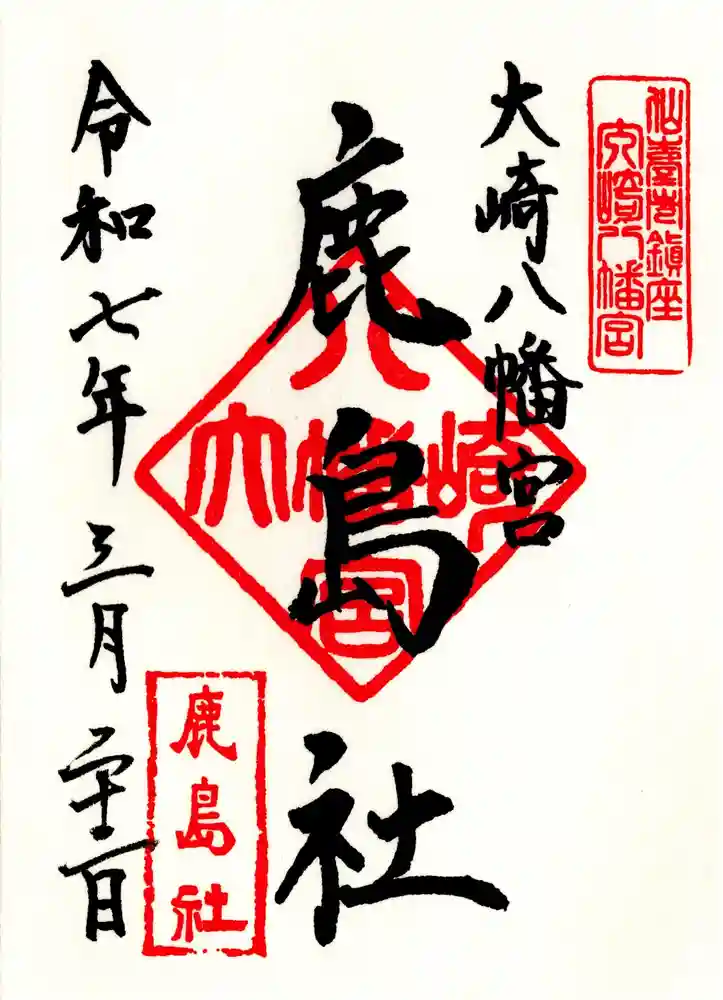 仙臺市鎮座
大崎八幡宮
大崎八幡宮
鹿島社
八
大幡崎
宮
令和七年三月二十二日
鹿島社